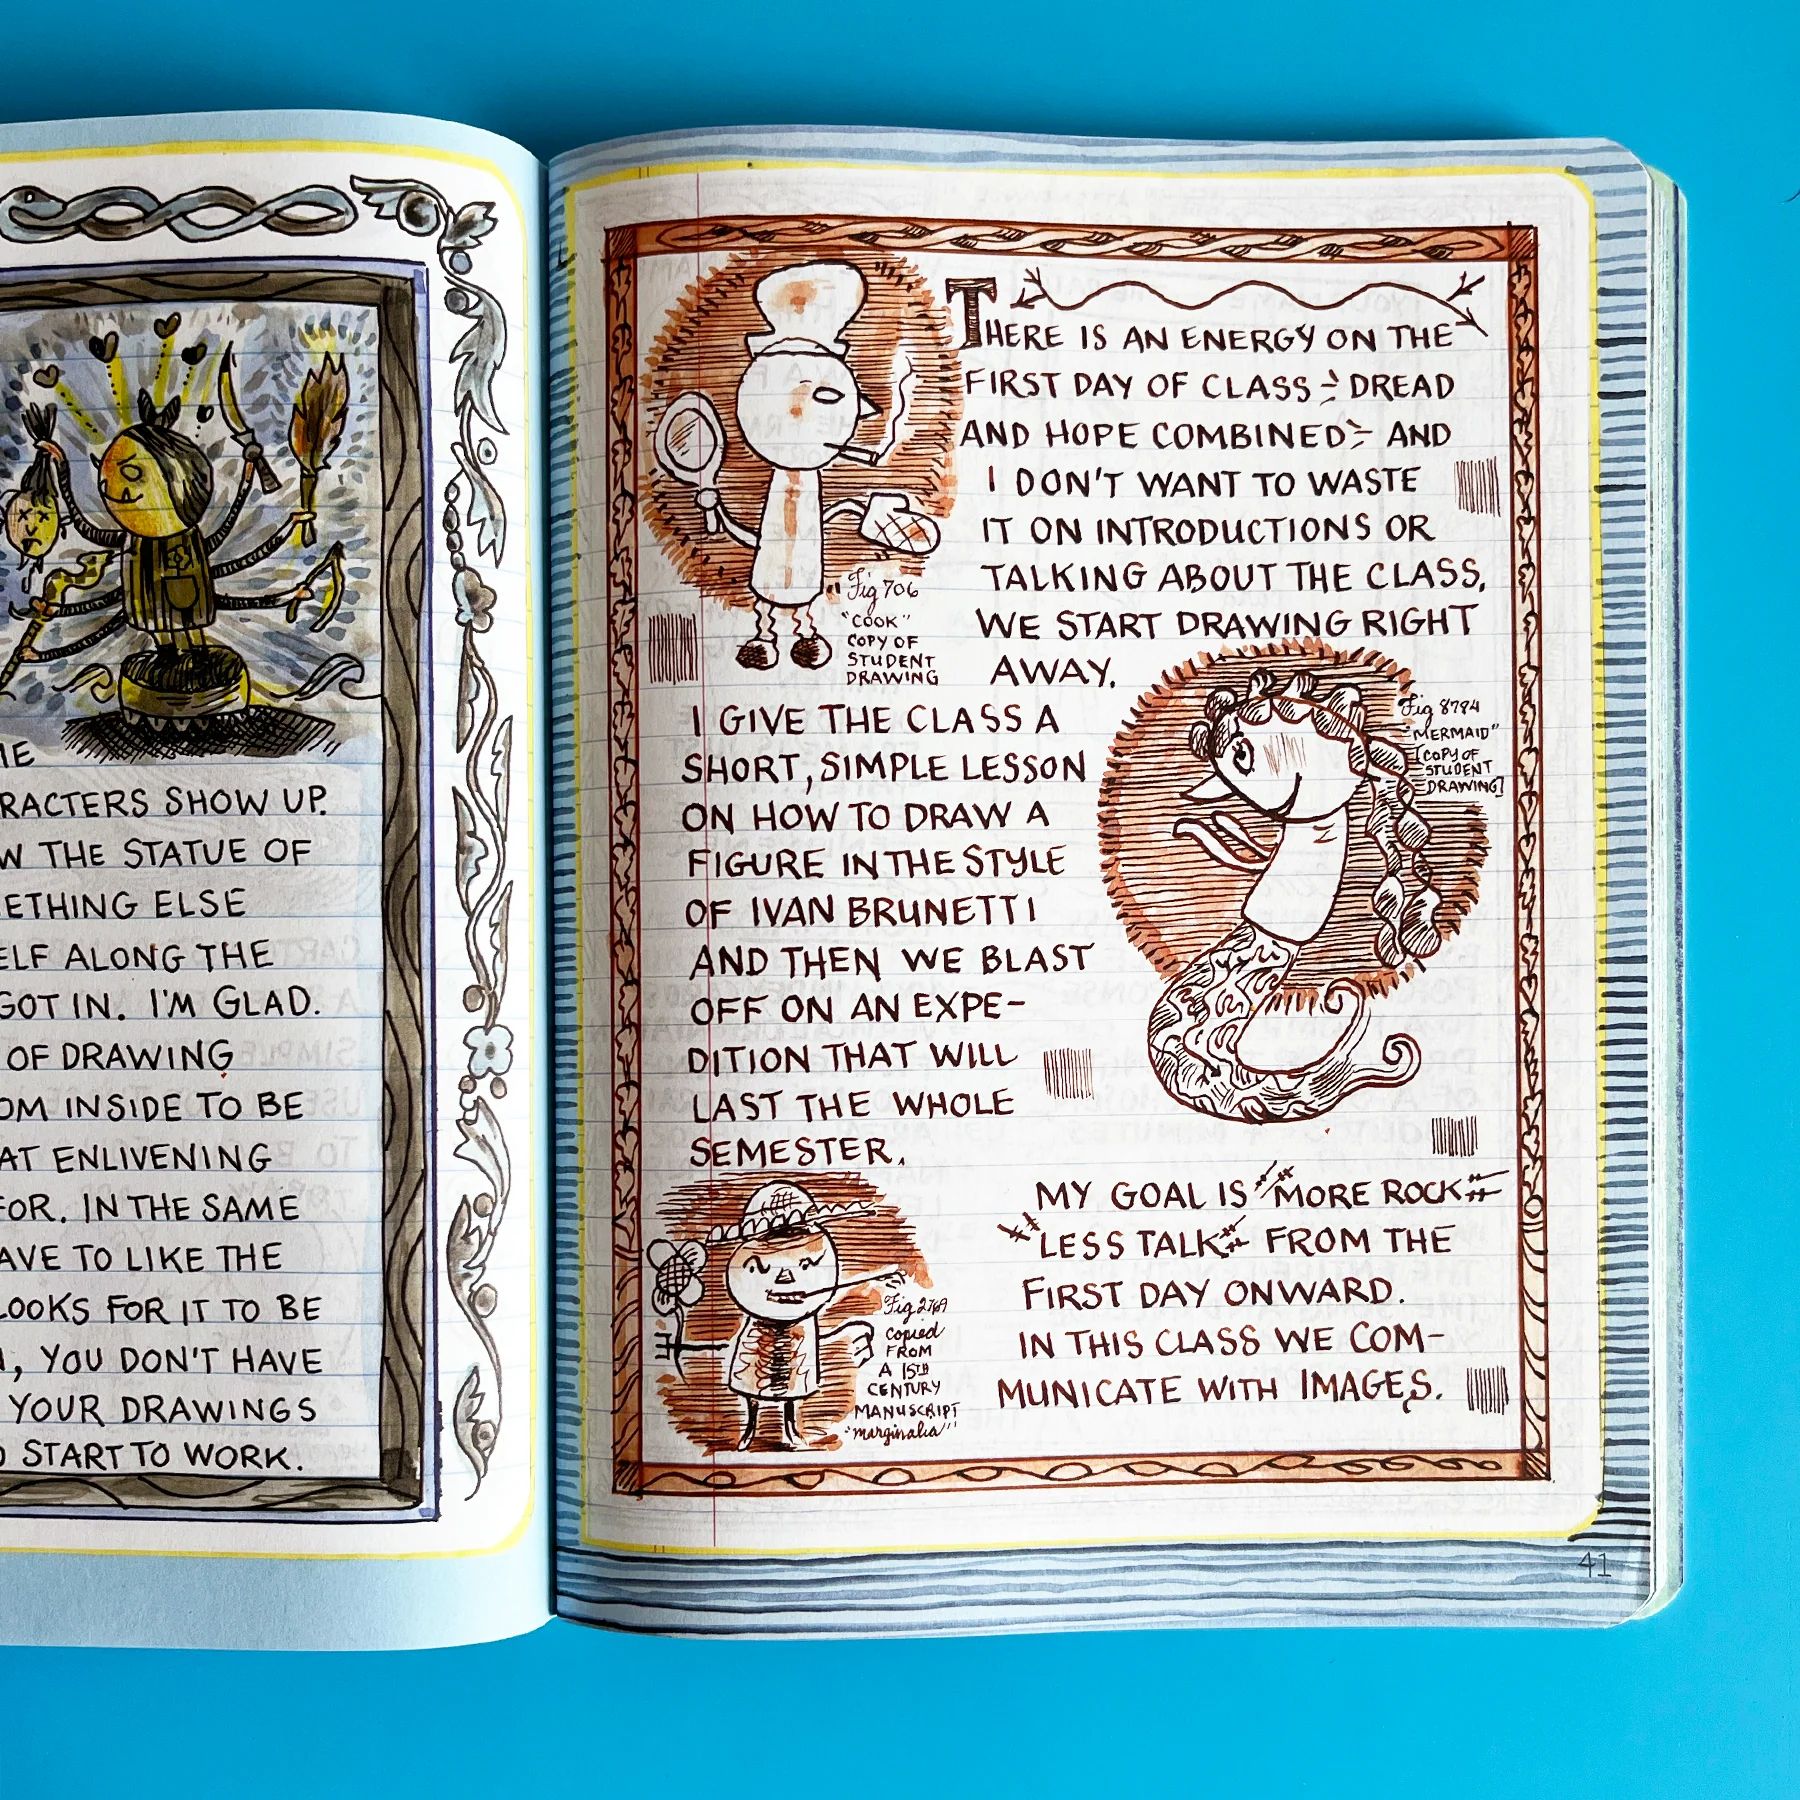 RACTERS SHOW UP.
W THE STATUE OF
ETHING ELSE
ELF ALONG THE
GOT IN. I'M GLAD.
OF DRAWING
OM INSIDE TO BE
AT ENLIVENING
FOR. IN THE SAME
AVE TO LIKE THE
LOOKS FOR IT TO BE
, YOU DON'T HAVE
YOUR DRAWINGS
START TO WORK.
THERE IS AN ENERGY ON THE
FIRST DAY OF CLASS - DREAD
AND HOPE COMBINED - AND
I DON'T WANT TO WASTE
IT ON INTRODUCTIONS OR
TALKING ABOUT THE CLASS,
WE START DRAWING RIGHT
AWAY.
Fig 706
"COOK"
COPY OF
STUDENT
DRAWING
I GIVE THE CLASS A
SHORT, SIMPLE LESSON
ON HOW TO DRAW A
FIGURE IN THE STYLE
OF IVAN BRUNETTI
AND THEN WE BLAST
OFF ON AN EXPE-
DITION THAT WILL
LAST THE WHOLE
SEMESTER.
Fig 8784
"MERMAID"
[COPY OF
STUDENT
DRAWING]
MY GOAL IS "MORE ROCK
LESS TALK" FROM THE
FIRST DAY ONWARD.
IN THIS CLASS WE COM-
MUNICATE WITH IMAGES.
Fig 2769
copied
FROM
A 15TH
CENTURY
MANUSCRIPT
"marginalia"
41